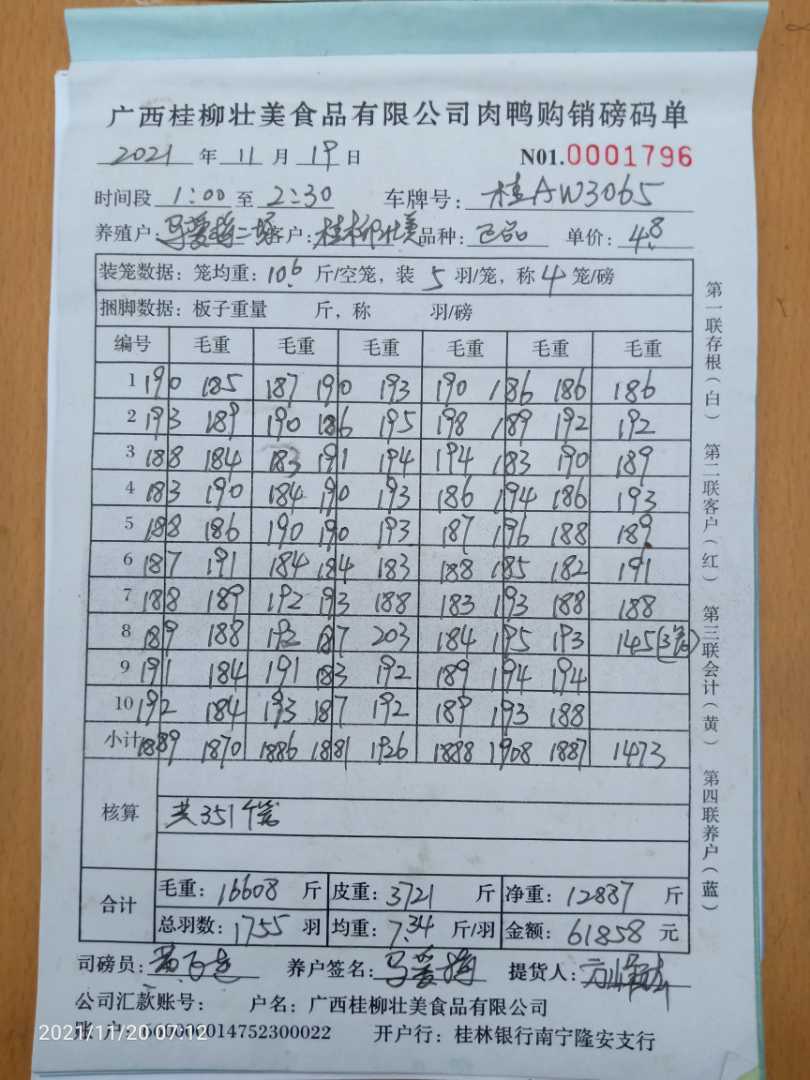 广西桂柳壮美食品有限公司肉鸭购销磅码单
2021 年 11 月 19 日 N01.0001796
时间段 1:00 至 2:30 车牌号: 桂AW3065
养殖户: 马爱梅二场 客户: 桂柳壮美 品种: 单价: 4.8
装笼数据: 笼均重: 10.6 斤/空笼, 装 5 羽/笼, 称 4 笼/磅
捆脚数据: 板子重量 斤, 称 羽/磅
编号 毛重 毛重 毛重 毛重 毛重 毛重
1 190 185 187 190 193 190 186 186 186
2 193 189 190 186 195 198 189 192 192
3 188 184 183 191 194 194 183 190 189
4 183 190 184 190 193 186 194 186 193
5 188 186 190 190 193 187 196 188 189
6 187 191 184 184 183 188 185 182 191
7 188 189 192 193 188 183 193 188 188
8 189 188 192 187 203 184 195 193 145(3笼)
9 191 184 191 183 192 189 194 194
10 192 184 193 187 192 189 193 188
小计 1889 1870 1886 1881 1926 1888 1908 1887 1473
核算 共351个笼
合计 毛重: 16608 斤 皮重: 3721 斤 净重: 12887 斤
总羽数: 1755 羽 均重: 7.34 斤/羽 金额: 61858 元
司磅员: 养户签名: 马爱梅 提货人:
公司汇款账号: 户名: 广西桂柳壮美食品有限公司
账 户: 000014752300022 开户行: 桂林银行南宁隆安支行
2021/11/20 07:12
第一联存根(白) 第二联客户(红) 第三联会计(黄) 第四联养户(蓝)